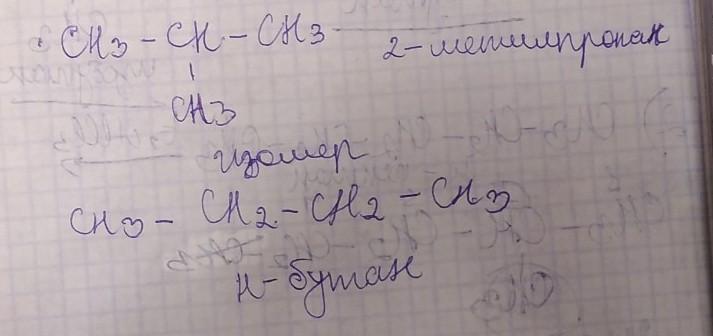 CH3 – CH – CH3 2-метилпропан
|
CH3
изомер
CH3 – CH2 – CH2 – CH3
н-бутан